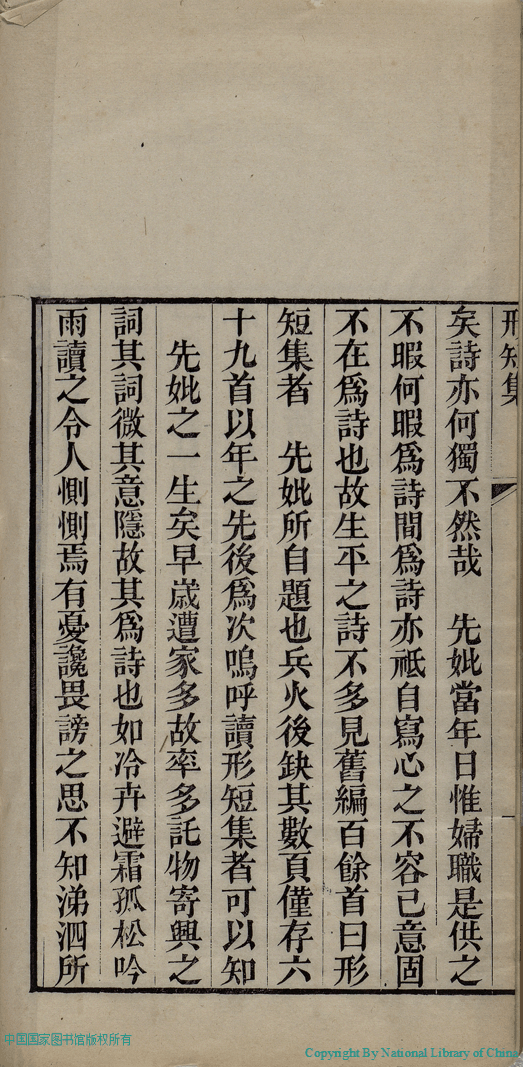 形短集
矣詩亦何獨不然哉　先妣當年日惟婦職是供之
不暇何暇爲詩間爲詩亦祗自寫心之不容已意固
不在爲詩也故生平之詩不多見舊編百餘首曰形
短集者　先妣所自題也兵火後缺其數頁僅存六
十九首以年之先後爲次嗚呼讀形短集者可以知
先妣之一生矣早歲遭家多故率多託物寄興之
詞其詞微其意隱故其爲詩也如冷卉避霜孤松吟
雨讀之令人惻惻焉有憂讒畏謗之思不知涕泗所
中国国家图书馆版权所有
Copyright By National Library of China